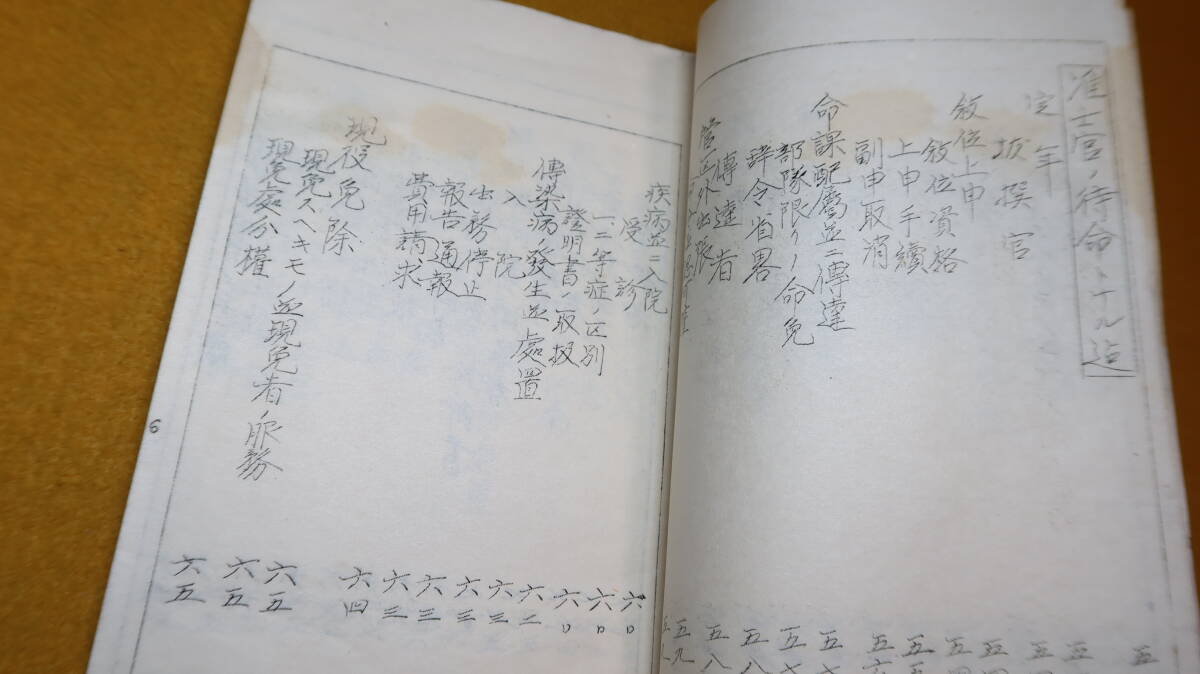 准士官ノ待命トナル迄
定年
抜擢官
叙位上申
叙位資格
上申手續
副申取消
命課配屬並ニ傳達
部隊限リノ命免
辞令省畧
傳達者
管区外出張
疾病並ニ入院 六〇
受診 六〇
一二等症ノ区別 六〇
證明書ノ取扱 六二
傳染病ノ發生並處置 六三
入院 六三
出務停止 六三
報告通報 六三
費用請求 六四
現役免除 六五
現免スヘキモノ並現免者ノ服務 六五
現免處分權 六五
6